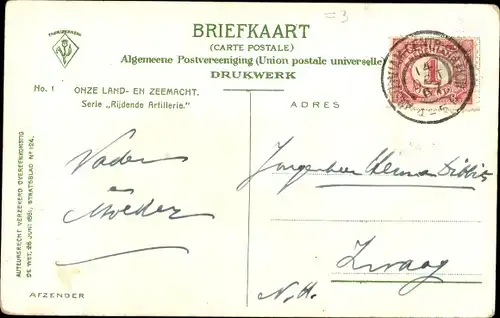 =3
BRIEFKAART
(CARTE POSTALE)
Algemeene Postvereeniging (Union postale universelle)
DRUKWERK
No. 1 ONZE LAND- EN ZEEMACHT.
Serie „Rijdende Artillerie."
ADRES
Vader
en
Moeder
Jongeheer
Zwaag
N. H.
AFZENDER
AUTEURSRECHT VERZEKERD OVEREENKOMSTIG
DE WET, 28 JUNI 1881, STRAATSBLAD Nº 124.
1